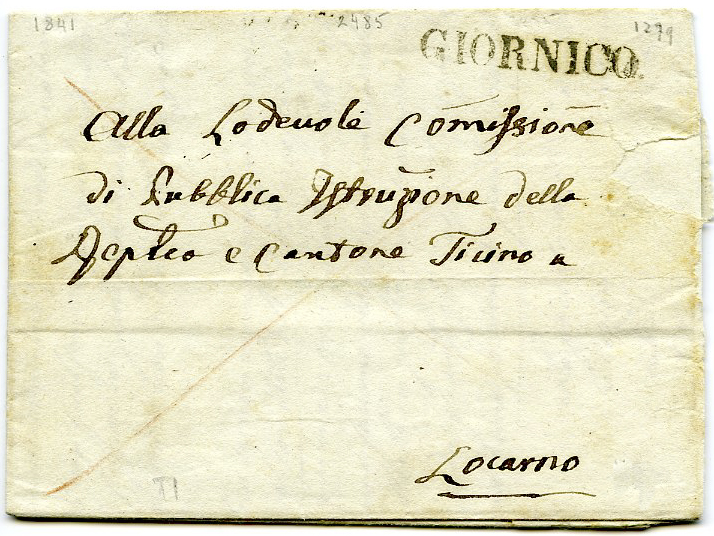 1841 2485 1299
GIORNICO.
Alla Lodevole Commissione
di Pubblica Istruzione della
Repca e Cantone Ticino a
Locarno
TI